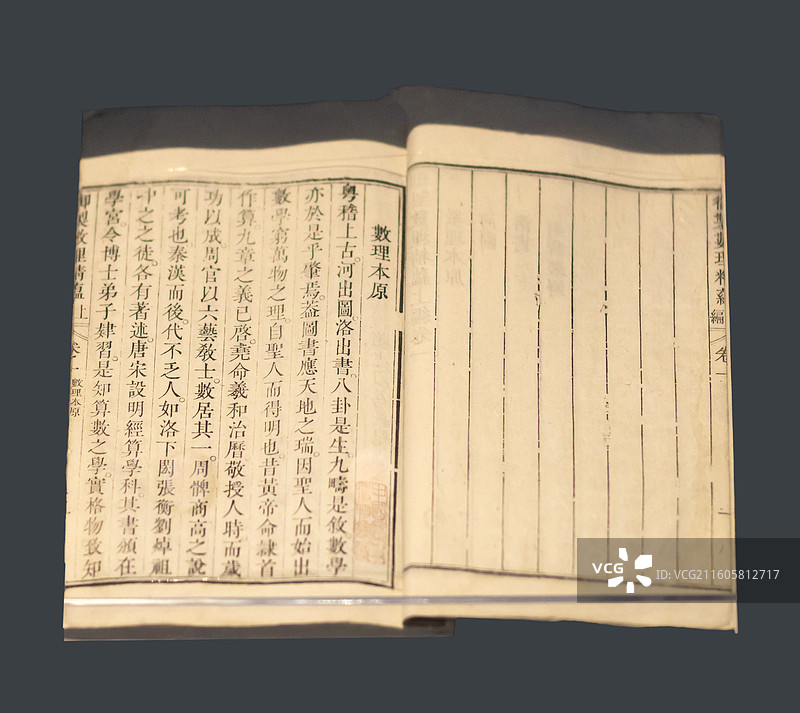 數理本原
粵稽上古。河出圖。洛出書。八卦是生。九疇是敘。數學
亦於是乎肇焉。蓋圖書應天地之瑞。因聖人而始出
數學窮萬物之理。自聖人而得明也。昔黃帝命隸首
作算。九章之義已啓。堯命羲和治曆。敬授人時。而歲
功以成。周官以六藝教士。數居其一。周髀商高之說
可考也。秦漢而後。代不乏人。如洛下閎張衡劉焯祖
中之之徒。各有著述。唐宋設明經算學科。其書頒在
學宮。令博士弟子肄習。是知算數之學。實格物致知
御製數理精蘊上
卷一
數理本原
數理精蘊
編
卷一
VCG
ID:VCG211605812717